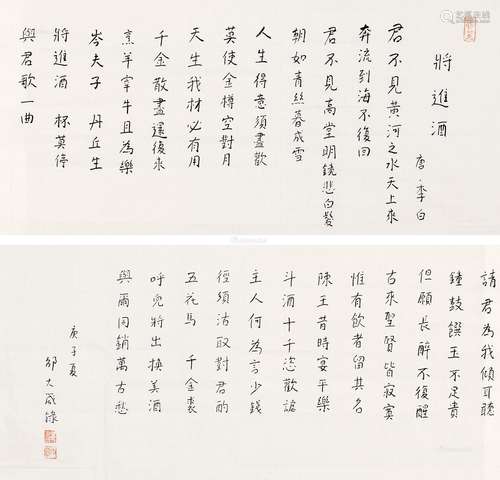 將進酒
唐·李白
君不見黃河之水天上來
奔流到海不復回
君不見高堂明鏡悲白髮
朝如青絲暮成雪
人生得意須盡歡
莫使金樽空對月
天生我材必有用
千金散盡還復來
烹羊宰牛且為樂
岑夫子 丹丘生
將進酒 杯莫停
與君歌一曲
請君為我傾耳聽
鐘鼓饌玉不足貴
但願長醉不復醒
古來聖賢皆寂寞
惟有飲者留其名
陳王昔時宴平樂
斗酒十千恣歡謔
主人何為言少錢
徑須沽取對君酌
五花馬 千金裘
呼兒將出換美酒
與爾同銷萬古愁
庚子夏
鄒大成錄